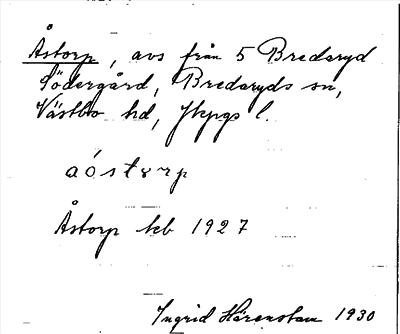 Åstorp, avs från 5 Bredaryd
Södergård, Bredaryds sn,
Västbo hd, Jkpgs l.
aóstorp
Åstorp kb 1927
Ingrid Härenstam 1930